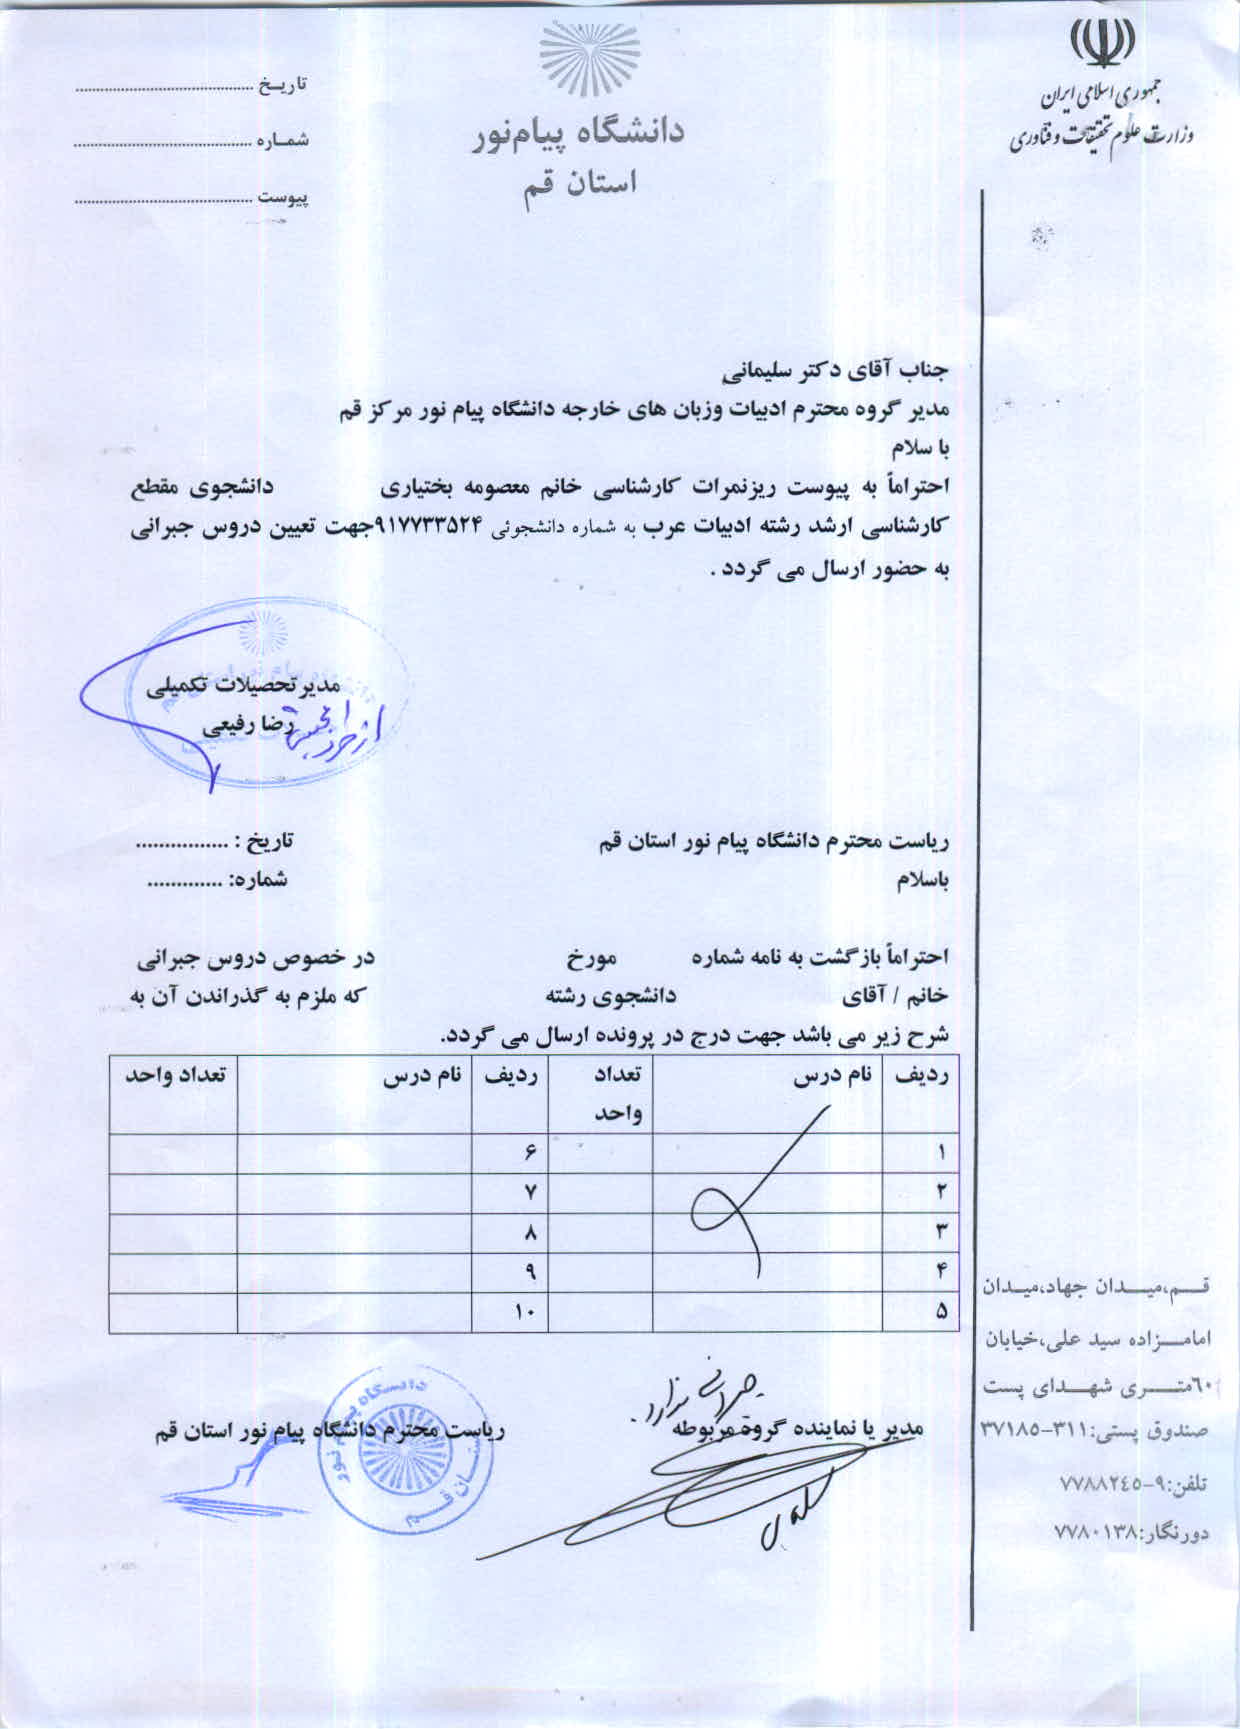 جمهوری اسلامی ایران
وزارت علوم تحقیقات و فناوری
دانشگاه پیام‌نور
استان قم
تاریـخ ..........................................
شمـاره ..........................................
پیوست ..........................................
جناب آقای دکتر سلیمانی
مدیر گروه محترم ادبیات وزبان های خارجه دانشگاه پیام نور مرکز قم
با سلام
احتراماً به پیوست ریزنمرات کارشناسی خانم معصومه بختیاری دانشجوی مقطع
کارشناسی ارشد رشته ادبیات عرب به شماره دانشجوئی ۹۱۷۷۳۳۵۲۴جهت تعیین دروس جبرانی
به حضور ارسال می گردد .
مدیرتحصیلات تکمیلی
رضا رفیعی
ریاست محترم دانشگاه پیام نور استان قم
تاریخ : ................
باسلام
شماره: .............
احتراماً بازگشت به نامه شماره مورخ در خصوص دروس جبرانی
خانم / آقای دانشجوی رشته که ملزم به گذراندن آن به
شرح زیر می باشد جهت درج در پرونده ارسال می گردد.
ردیف نام درس تعداد واحد ردیف نام درس تعداد واحد
۱ ۶
۲ ۷
۳ ۸
۴ ۹
۵ ۱۰
جبرانی ندارد.
مدیر یا نماینده گروه مربوطه
ریاست محترم دانشگاه پیام نور استان قم
دانشگاه پیام نور
استـان قـم
قـــم،میــدان جهاد،میـدان
امامـــزاده سید علی،خیابان
٦٠متـــری شهـــدای پست
صندوق پستی:۳۱۱-۳۷۱۸۵
تلفن:۹-۷۷۸۸۲٤٥
دورنگار:۷۷۸۰۱۳۸